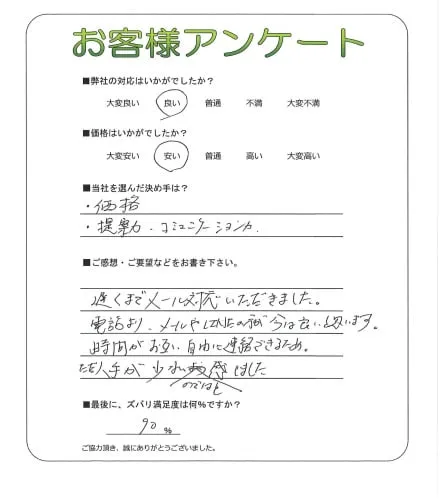 お客様アンケート
■弊社の対応はいかがでしたか?
大変良い 良い 普通 不満 大変不満
■価格はいかがでしたか?
大変安い 安い 普通 高い 大変高い
■当社を選んだ決め手は?
・価格
・提案力、コミュニケーション力、
■ご感想・ご要望などをお書き下さい。
遅くまでメール対応いただきました。
電話より、メールやLINEの方が今は良いと思います。
時間がお互い自由に連絡できるため。
ただ人手が少ない感はした
のではと
■最後に、ズバリ満足度は何%ですか?
90 %
ご協力頂き、誠にありがとうございました。